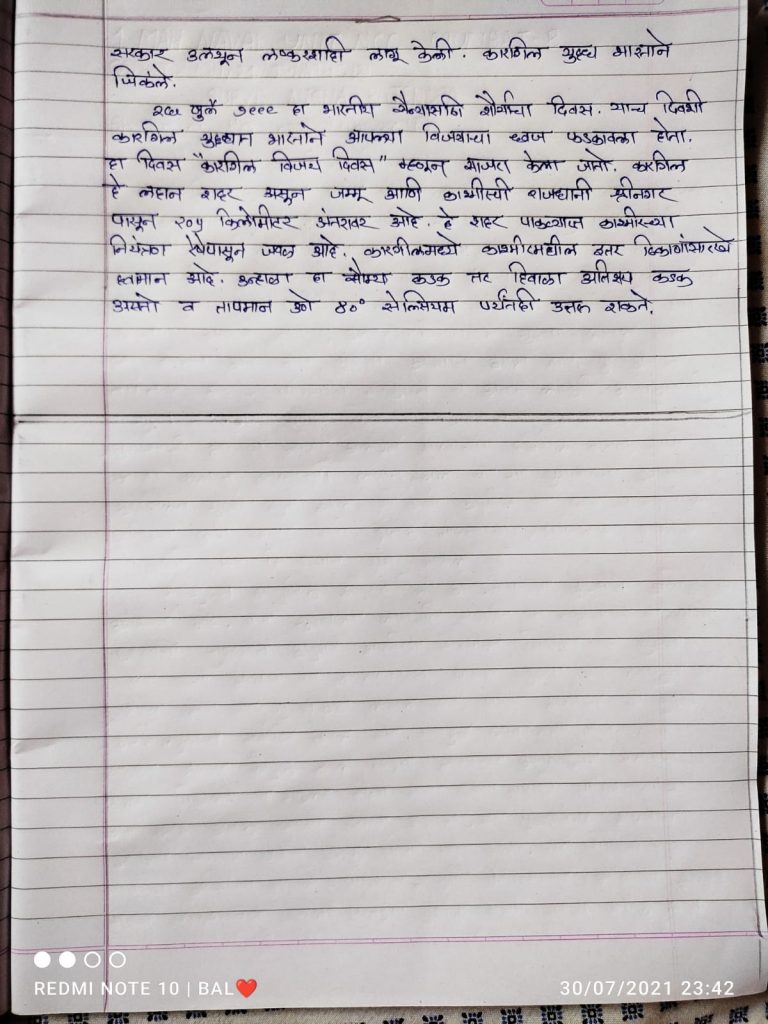 सरकार उलथून लष्करशाही लागू केली. कारगिल युद्ध भारताने
जिंकले.
२६ जुलै १९९९ हा भारतीय सैन्यासाठी शौर्याचा दिवस. याच दिवशी
कारगिल युद्धात भारताने आपल्या विजयाचा ध्वज फडकावला होता.
हा दिवस "कारगिल विजय दिवस" म्हणून साजरा केला जातो. कारगिल
हे लहान शहर असून जम्मू आणि काश्मीरची राजधानी श्रीनगर
पासून २०५ किलोमीटर अंतरावर आहे. हे शहर पाकव्याप्त काश्मीरच्या
नियंत्रण रेषेपासून जवळ आहे. कारगीलमध्ये काश्मीरमधील इतर ठिकाणांसारखे
हवामान आहे. उन्हाळा हा सौम्य कडक तर हिवाळा अतिशय कडक
असतो व तापमान उणे ४०° सेल्सियस पर्यंतही उतरू शकते.
REDMI NOTE 10 | BAL❤️
30/07/2021 23:42